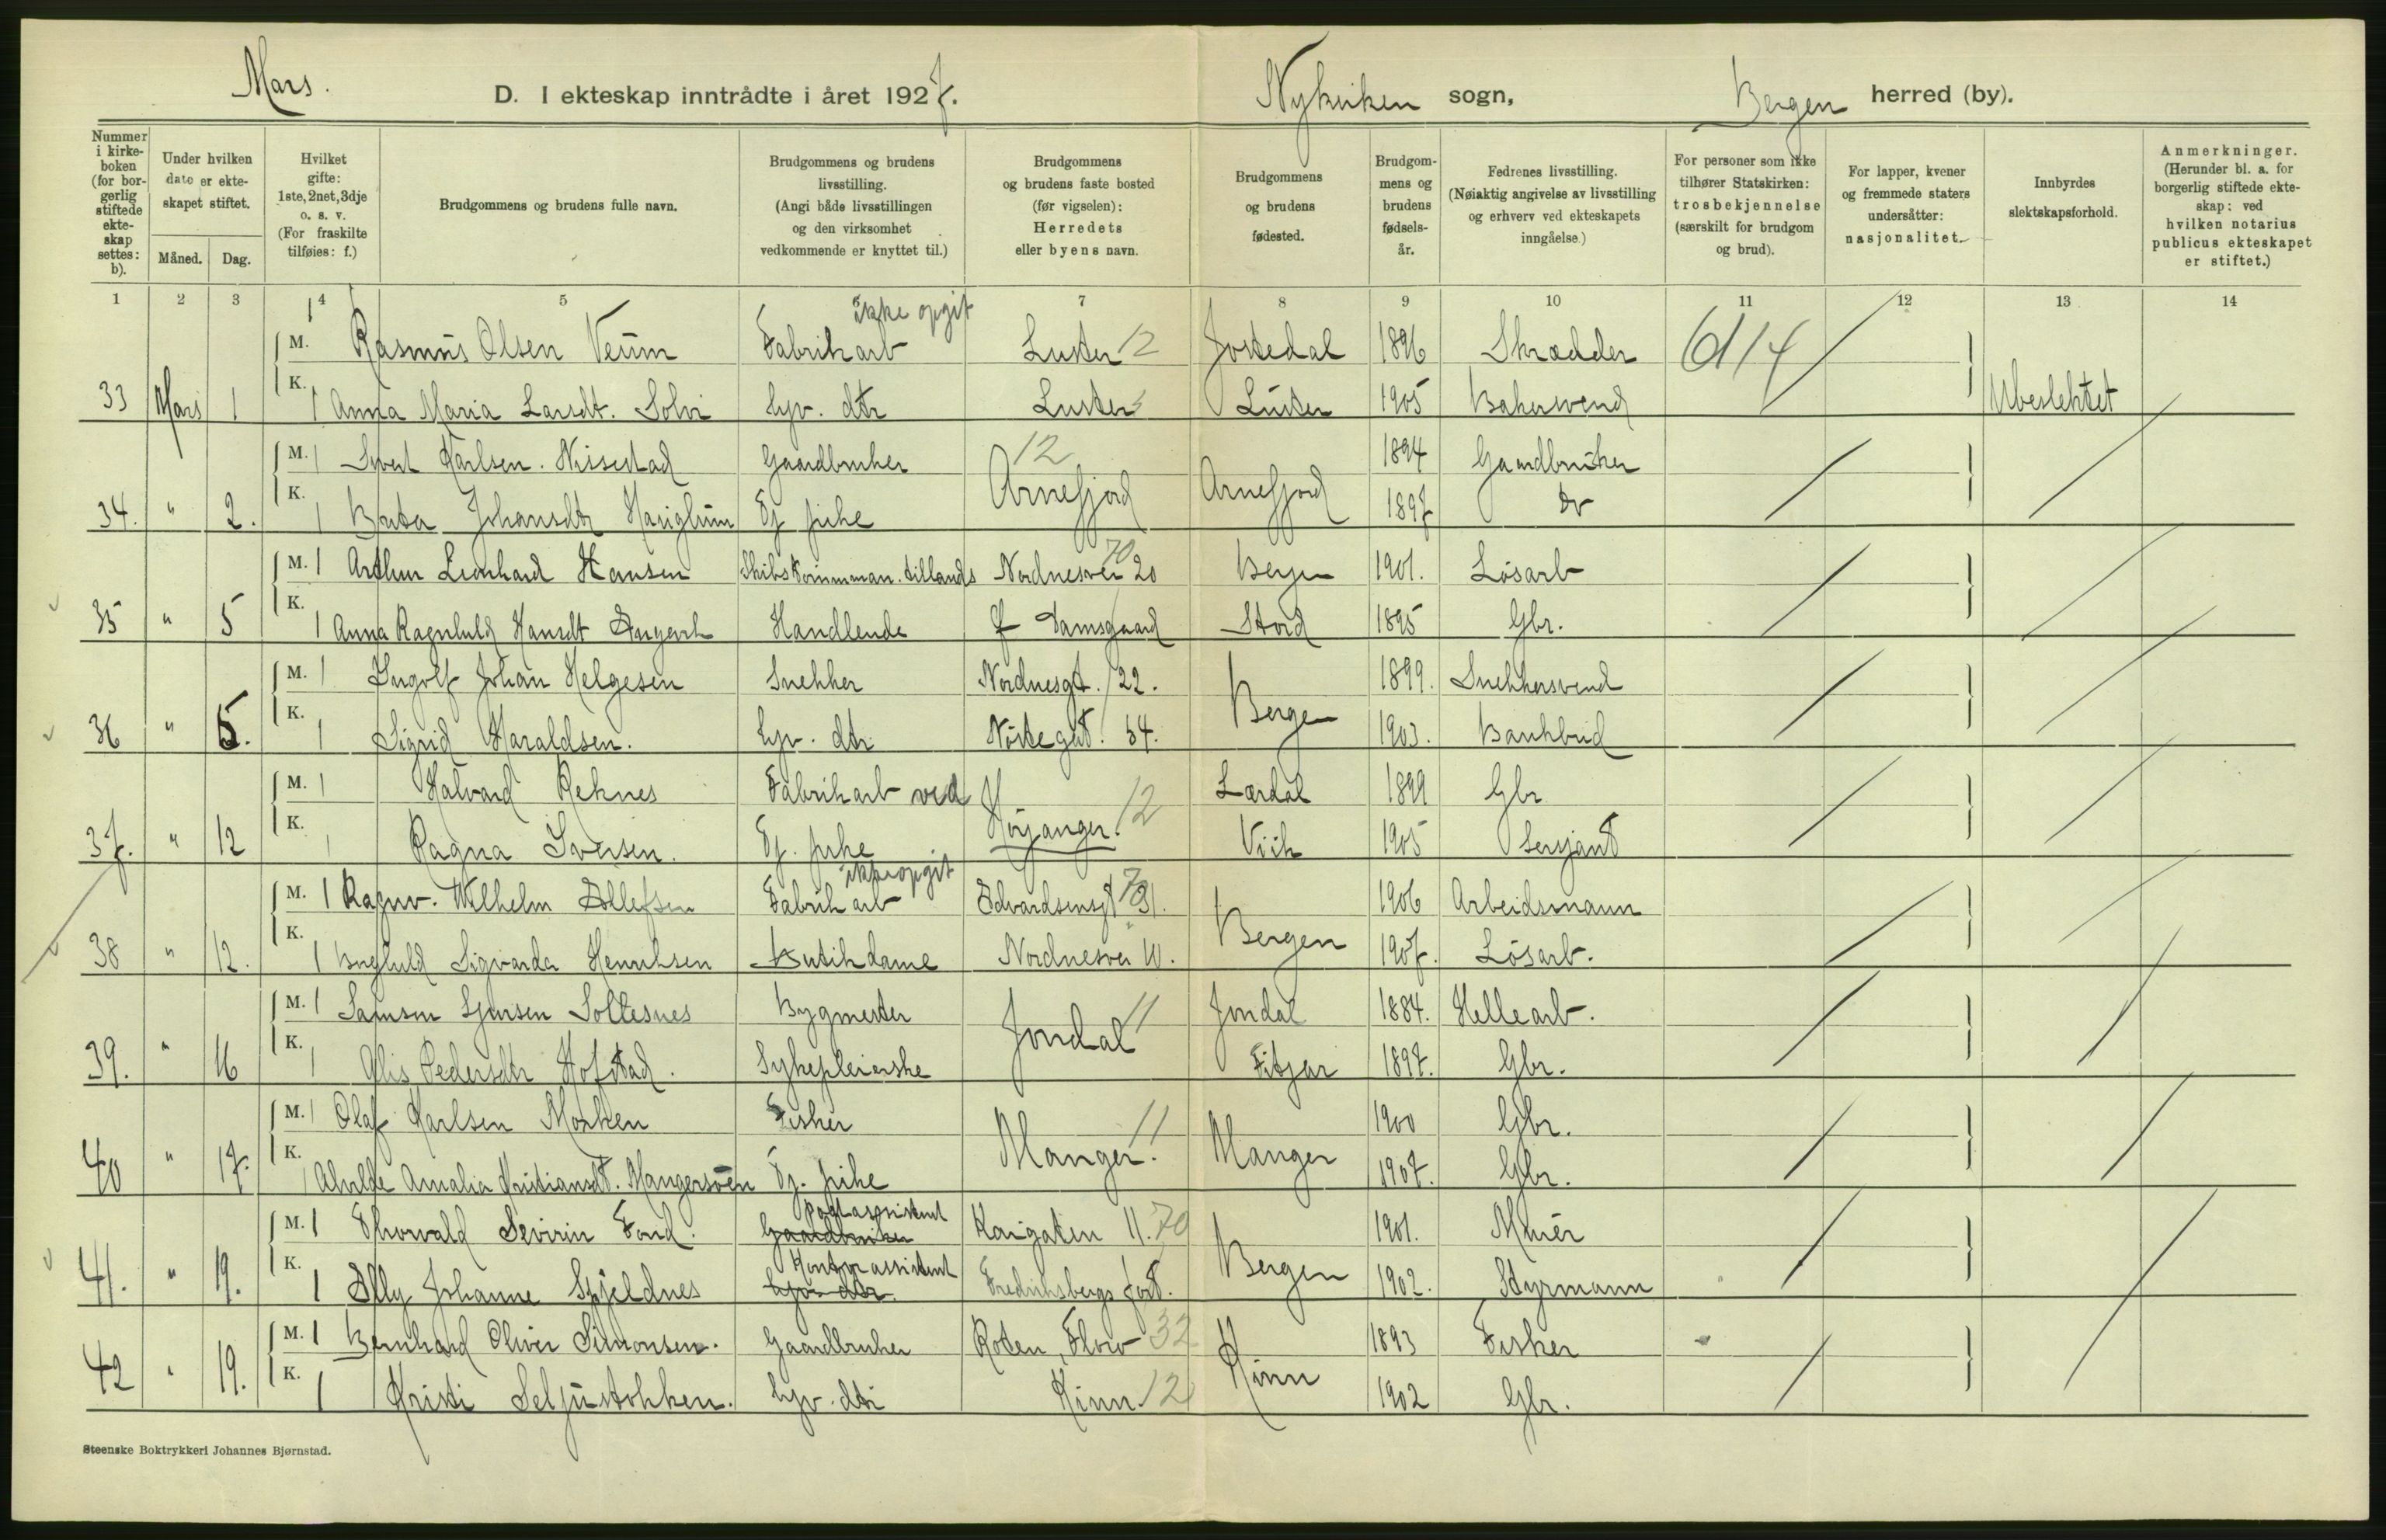 Mars. D. I ekteskap inntrådte i året 1927. Nykirken sogn, Bergen herred (by).
Nummer i kirkeboken (for borgerlig stiftede ekteskap settes: b).
Under hvilken dato er ekteskapet stiftet.
Måned. Dag.
Hvilket gifte: 1ste, 2net, 3dje o. s. v. (For fraskilte tilføies: f.)
Brudgommens og brudens fulle navn.
Brudgommens og brudens livsstilling. (Angi både livsstillingen og den virksomhet vedkommende er knyttet til.)
Brudgommens og brudens faste bosted (før vigselen): Herredets eller byens navn.
Brudgommens og brudens fødested.
Brudgommens og brudens fødselsår.
Fedrenes livsstilling. (Nøiaktig angivelse av livsstilling og erhverv ved ekteskapets inngåelse.)
For personer som ikke tilhører Statskirken: trosbekjennelse (særskilt for brudgom og brud).
For lapper, kvener og fremmede staters undersåtter: nasjonalitet.
Innbyrdes slektskapsforhold.
Anmerkninger. (Herunder bl. a. for borgerlig stiftede ekteskap: ved hvilken notarius publicus ekteskapet er stiftet.)
1 2 3 4 5 7 8 9 10 11 12 13 14
ikke opgit
M. 1 Rasmus Olsen Veum Fabrikarb Luster 12 Jostedal 1896 Skrædder
33 Mars 1 K. 1 Anna Maria Larsdt. Solvi hjv. dtr Luster Luster 1905 Bakersvend Ubeslektet
M. 1 Sivert Karlsen Nissestad Gaardbruker 12 1894 Gaardbruker
34. " 2. K. 1 Brita Johansdtr Tj pike Arnefjord Arnefjord 1897 do
M. 1 Arthur Leonhard Hansen Nordnesvei 20 70 Bergen 1901. Løsarb
35 " 5 K. 1 Anna Ragnhild Hansdt Handlende Damsgaard Stord 1895 Gbr.
M. 1 Ingolf Johan Helgesen Snekker Nordnesgt. 22. 1899. Snekkersvend
36 " 5. K. 1 Sigrid Haraldsen. hjv. dtr Nøstegat. 54. Bergen 1903. Bankbud
M. 1 Halvard Reknes Fabrikarb ved Lærdal 1899 Gbr
37. " 12 K. 1 Ragna Iversen. Tj. pike Høyanger. 12 Viik 1905 Sersjant
ikke opgit
M. 1 Ragnv. Wilhelm Ellefsen Fabrikarb Edvardsensgt 31. 70 1906 Arbeidsmann
38 " 12. K. 1 Borghild Sigvarda Henriksen Butikdame Nordnesvei 10. Bergen 1907. Løsarb.
M. 1 Samson Sjursen Soltesnes Bygmester 11 Jondal 1884. Hellearb.
39. " 16 K. 1 Alis Pedersdtr Hofstad. Sykepleierske Jondal Fitjar 1897. Gbr.
M. 1 Olaf Karlsen Morken Fisker 11 1900 Gbr.
40 " 17. K. 1 Alvilde Amalia Kristiansdt. Mangersøen Tj. pike Manger. Manger 1907. Gbr.
Postassistent
M. 1 Thorvald Severin Fond. Gaardbruker Kaigaten 11. 70 1901. Murer
Kontorassistent
41. " 19. K. 1 Elly Johanne Spjeldnes hjv. dtr. Fredriksbergs fort. Bergen 1902. Styrmann
M. 1 Bernhard Oliver Simonsen. Gaardbruker Roten, Florø 32 1893 Fisker
42 " 19. K. 1 Kristi Seljustokken. hjv. dtr Kinn 12 Kinn 1902 Gbr.
Steenske Boktrykkeri Johannes Bjørnstad.